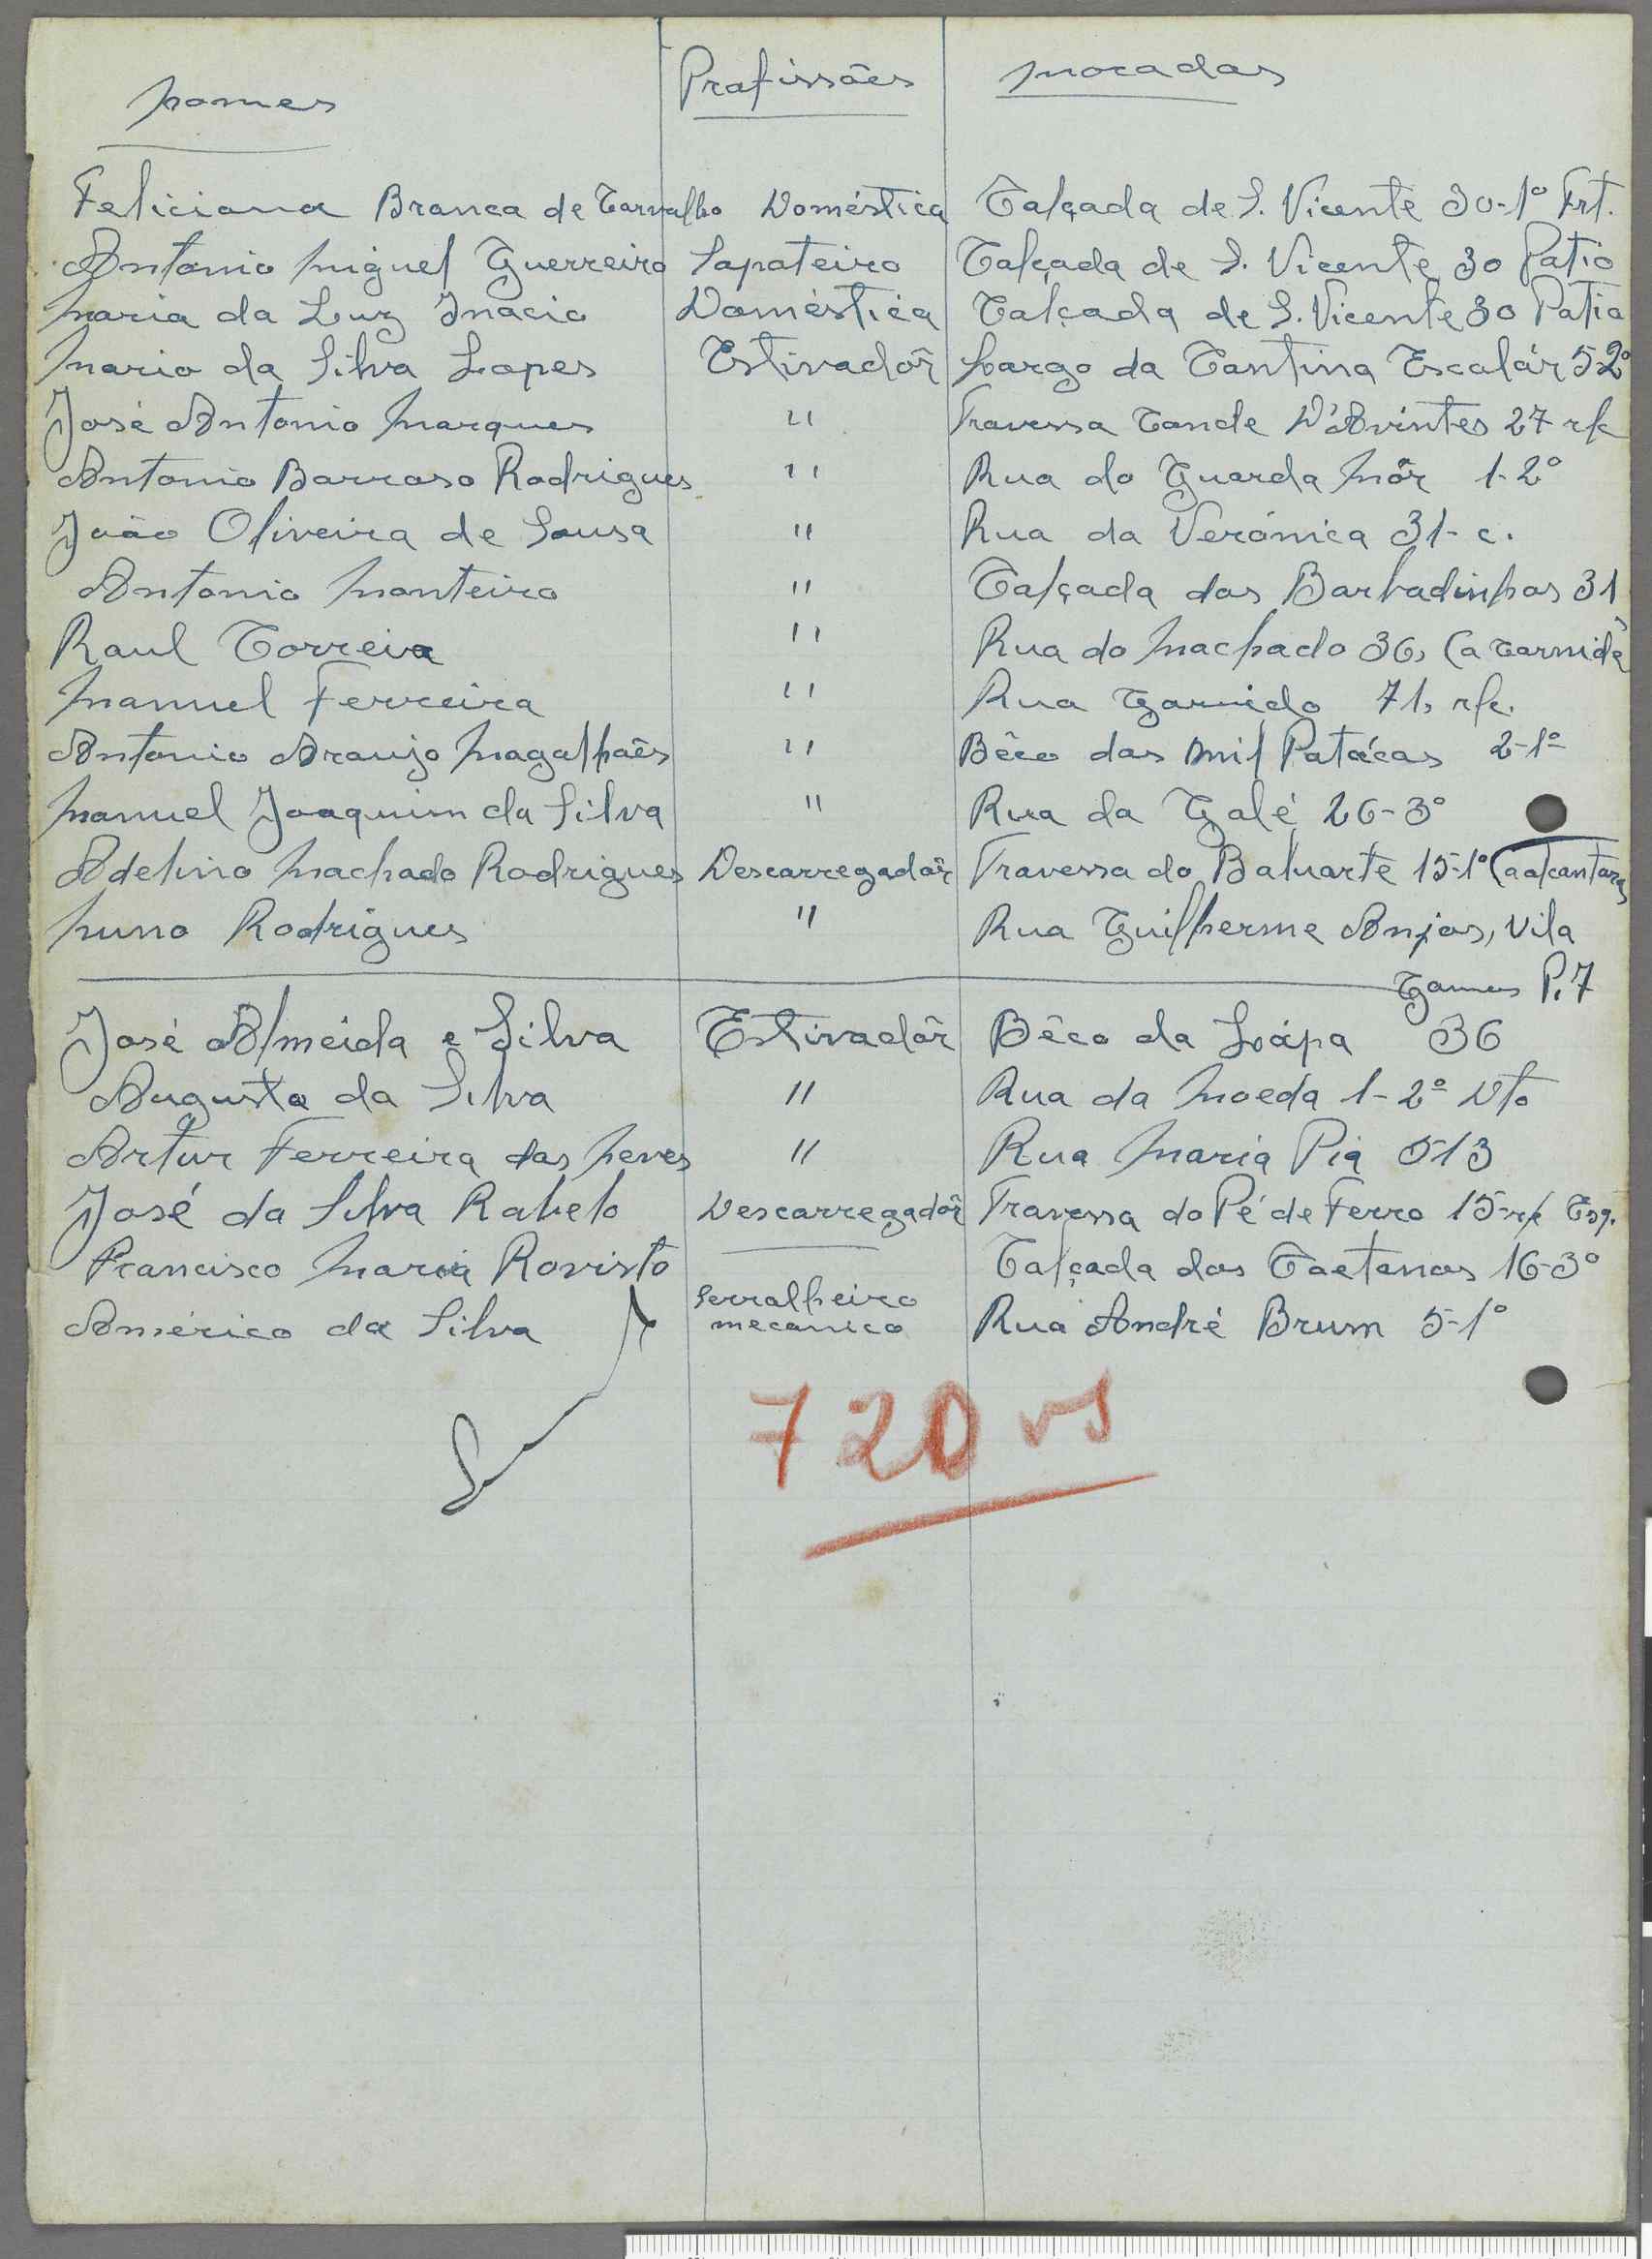 Nomes Profissões Moradas
Feliciana Branca de Carvalho Doméstica Calçada de S. Vicente 30-1º Frt.
Antonio Miguel Guerreiro Sapateiro Calçada de S. Vicente 30 Patio
Maria da Luz Inacio Doméstica Calçada de S. Vicente 30 Patio
Mario da Silva Lopes Estivadôr Largo da Cantina Escolár 5 2º
José Antonio Marques " Travessa Conde D'Avintes 27 r/c
Antonio Barroso Rodrigues " Rua do Guarda Môr 1-2º
João Oliveira de Sousa " Rua da Verónica 31-c.
Antonio Monteiro " Calçada dos Barbadinhos 31
Raul Correia " Rua do Machado 36, (a Carnide)
Manuel Ferreira " Rua Garrido 71, r/c.
Antonio Araujo Magalhaês " Bêco das mil Patácas 2-1º
Manuel Joaquim da Silva " Rua da Galé 26-3º
Adelino Machado Rodrigues Descarregadôr Travessa do Baluarte 15-1º (a alcantara)
Nuno Rodrigues " Rua Guilherme Anjos, Vila
Gomes P. 7
José Almeida e Silva Estivadôr Bêco da Loápa 36
Augusto da Silva " Rua da Moeda 1-2º Dto
Artur Ferreira das Neves " Rua Maria Pia 513
José da Silva Rabelo Descarregadôr Travessa do Pé de Ferro 15-r/c Esq.
Francisco Maria Rovisto Calçada dos Caetanos 16-3º
Américo da Silva Serralheiro mecanico Rua André Brum 5-1º
720 vs